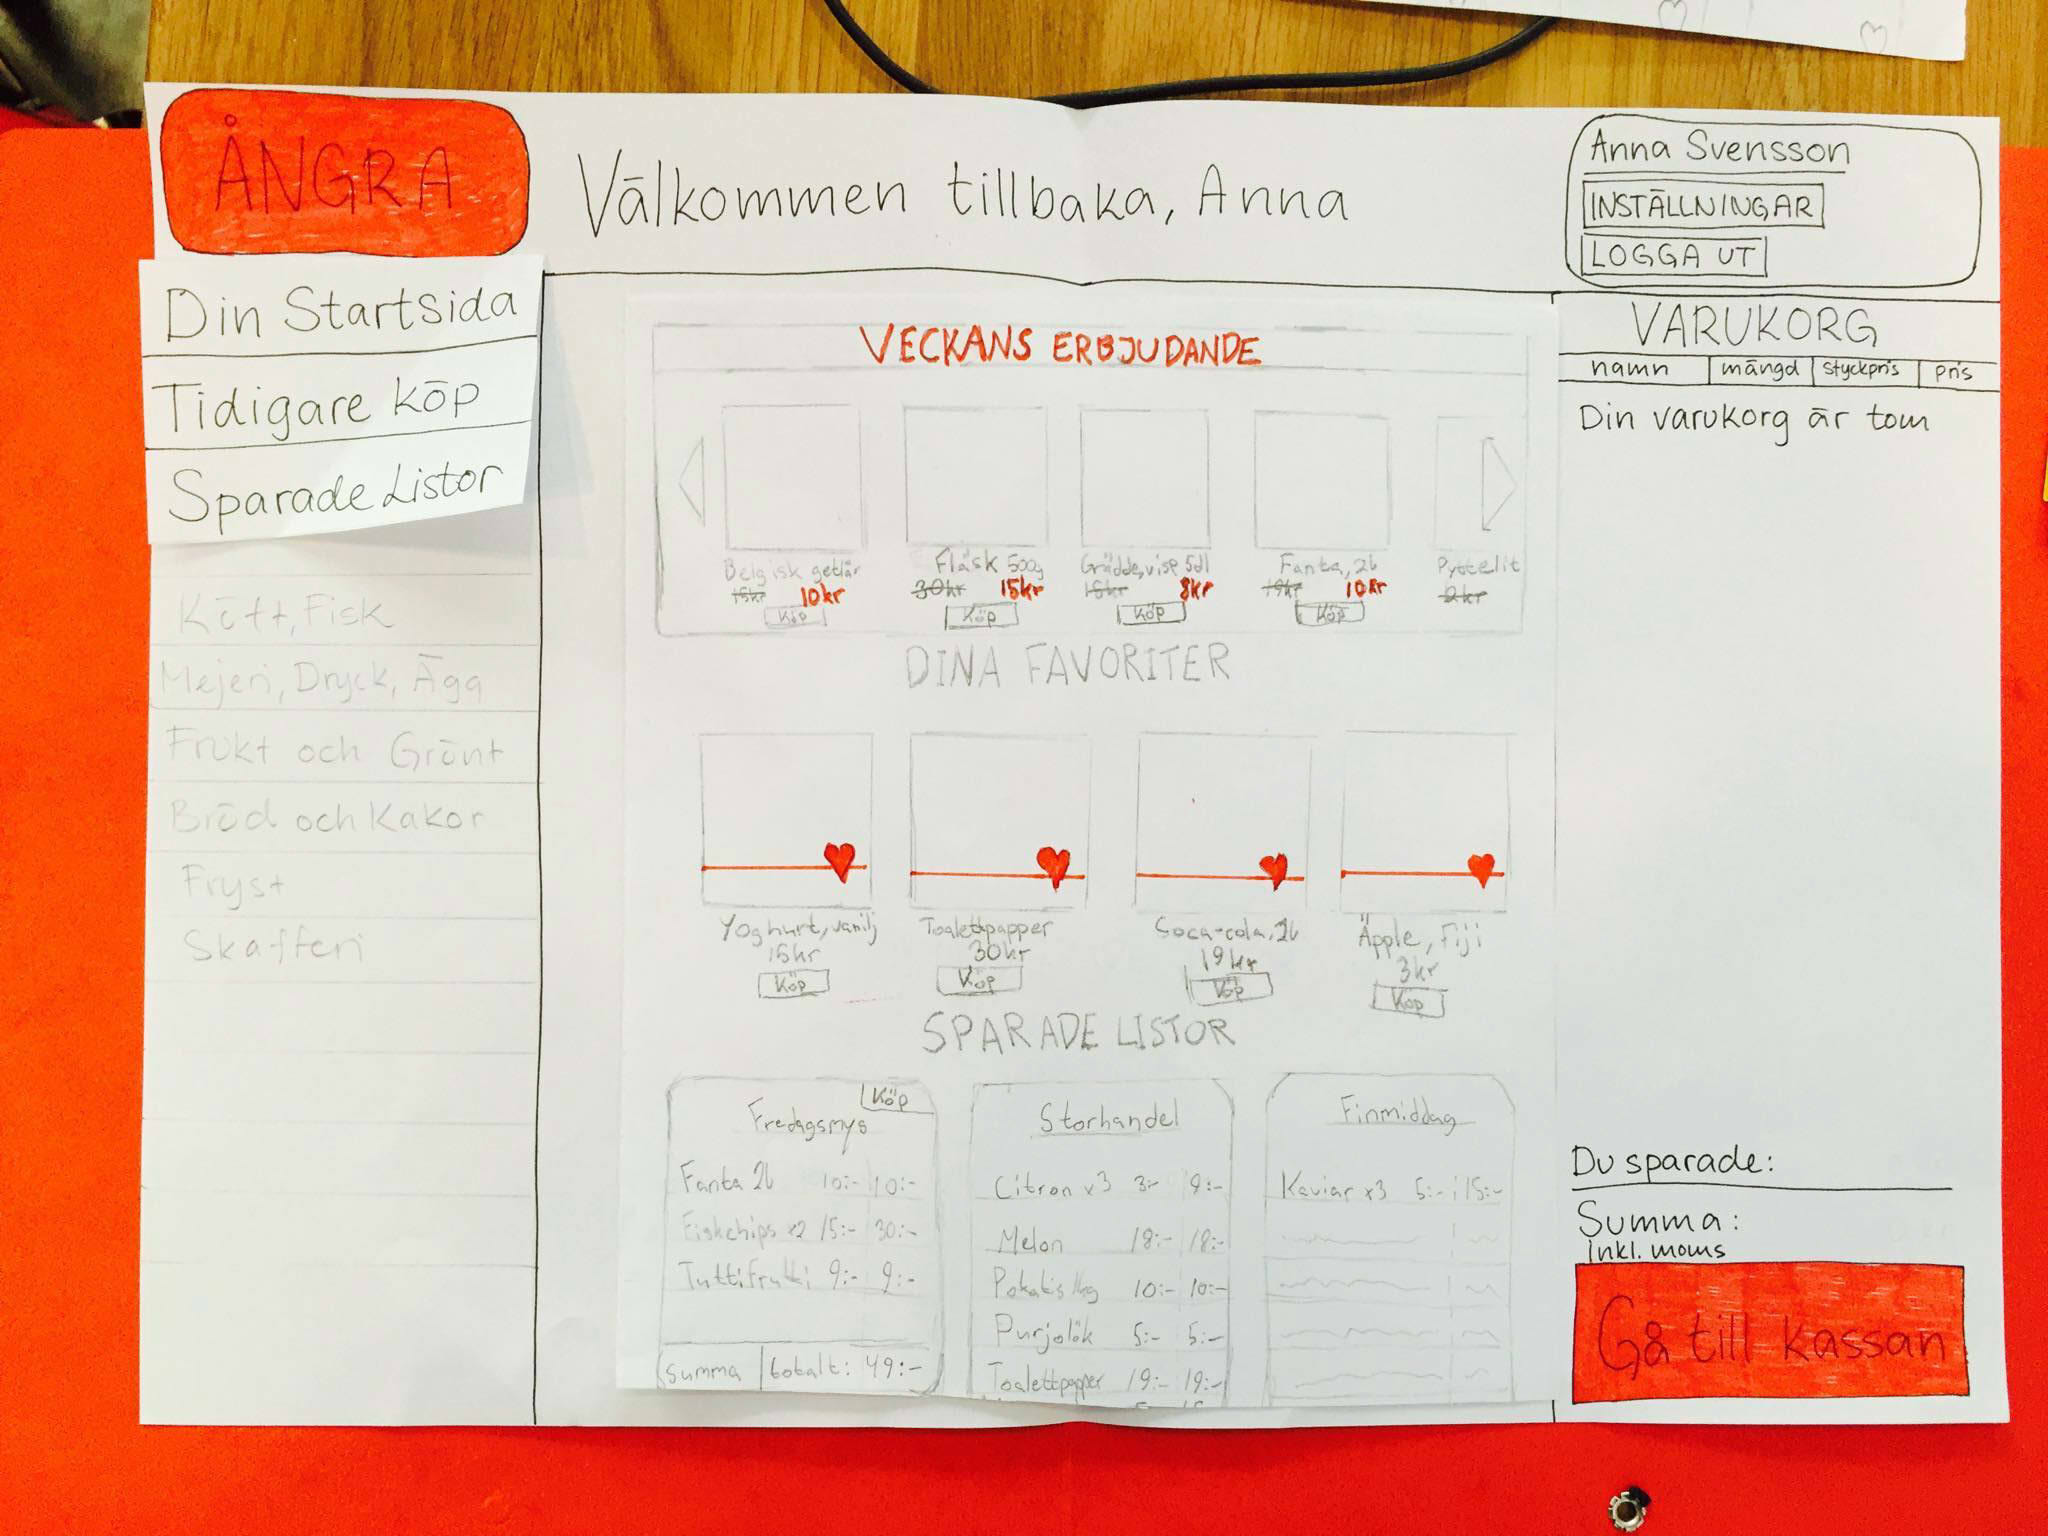 ÅNGRA
Välkommen tillbaka, Anna
Anna Svensson
INSTÄLLNINGAR
LOGGA UT
Din Startsida
Tidigare köp
Sparade Listor
Kött, Fisk
Mejeri, Dryck, Ägg
Frukt och Grönt
Bröd och Kakor
Fryst
Skafferi
VECKANS ERBJUDANDE
Belgisk getlår
15kr 10kr
Köp
Fläsk 500g
30kr 15kr
Köp
Grädde, visp 5dl
15kr 8kr
Köp
Fanta, 2L
19kr 10kr
Köp
Pyttelit
2kr
DINA FAVORITER
Yoghurt, vanilj
15kr
Köp
Toalettpapper
30kr
Köp
Coca-cola, 2L
19kr
Köp
Äpple, Fiji
3kr
Köp
SPARADE LISTOR
Köp
Fredagsmys
Fanta 2L 10:- 10:-
x2 15:- 30:-
Tuttifrutti 9:- 9:-
Summa totalt: 49:-
Storhandel
Citron x3 3:- 9:-
Melon 18:- 18:-
10:- 10:-
Purjolök 5:- 5:-
Toalettpapper 19:- 19:-
Finmiddag
Kaviar x3 5:- 15:-
VARUKORG
namn mängd styckpris pris
Din varukorg är tom
Du sparade:
Summa:
inkl. moms
Gå till kassan